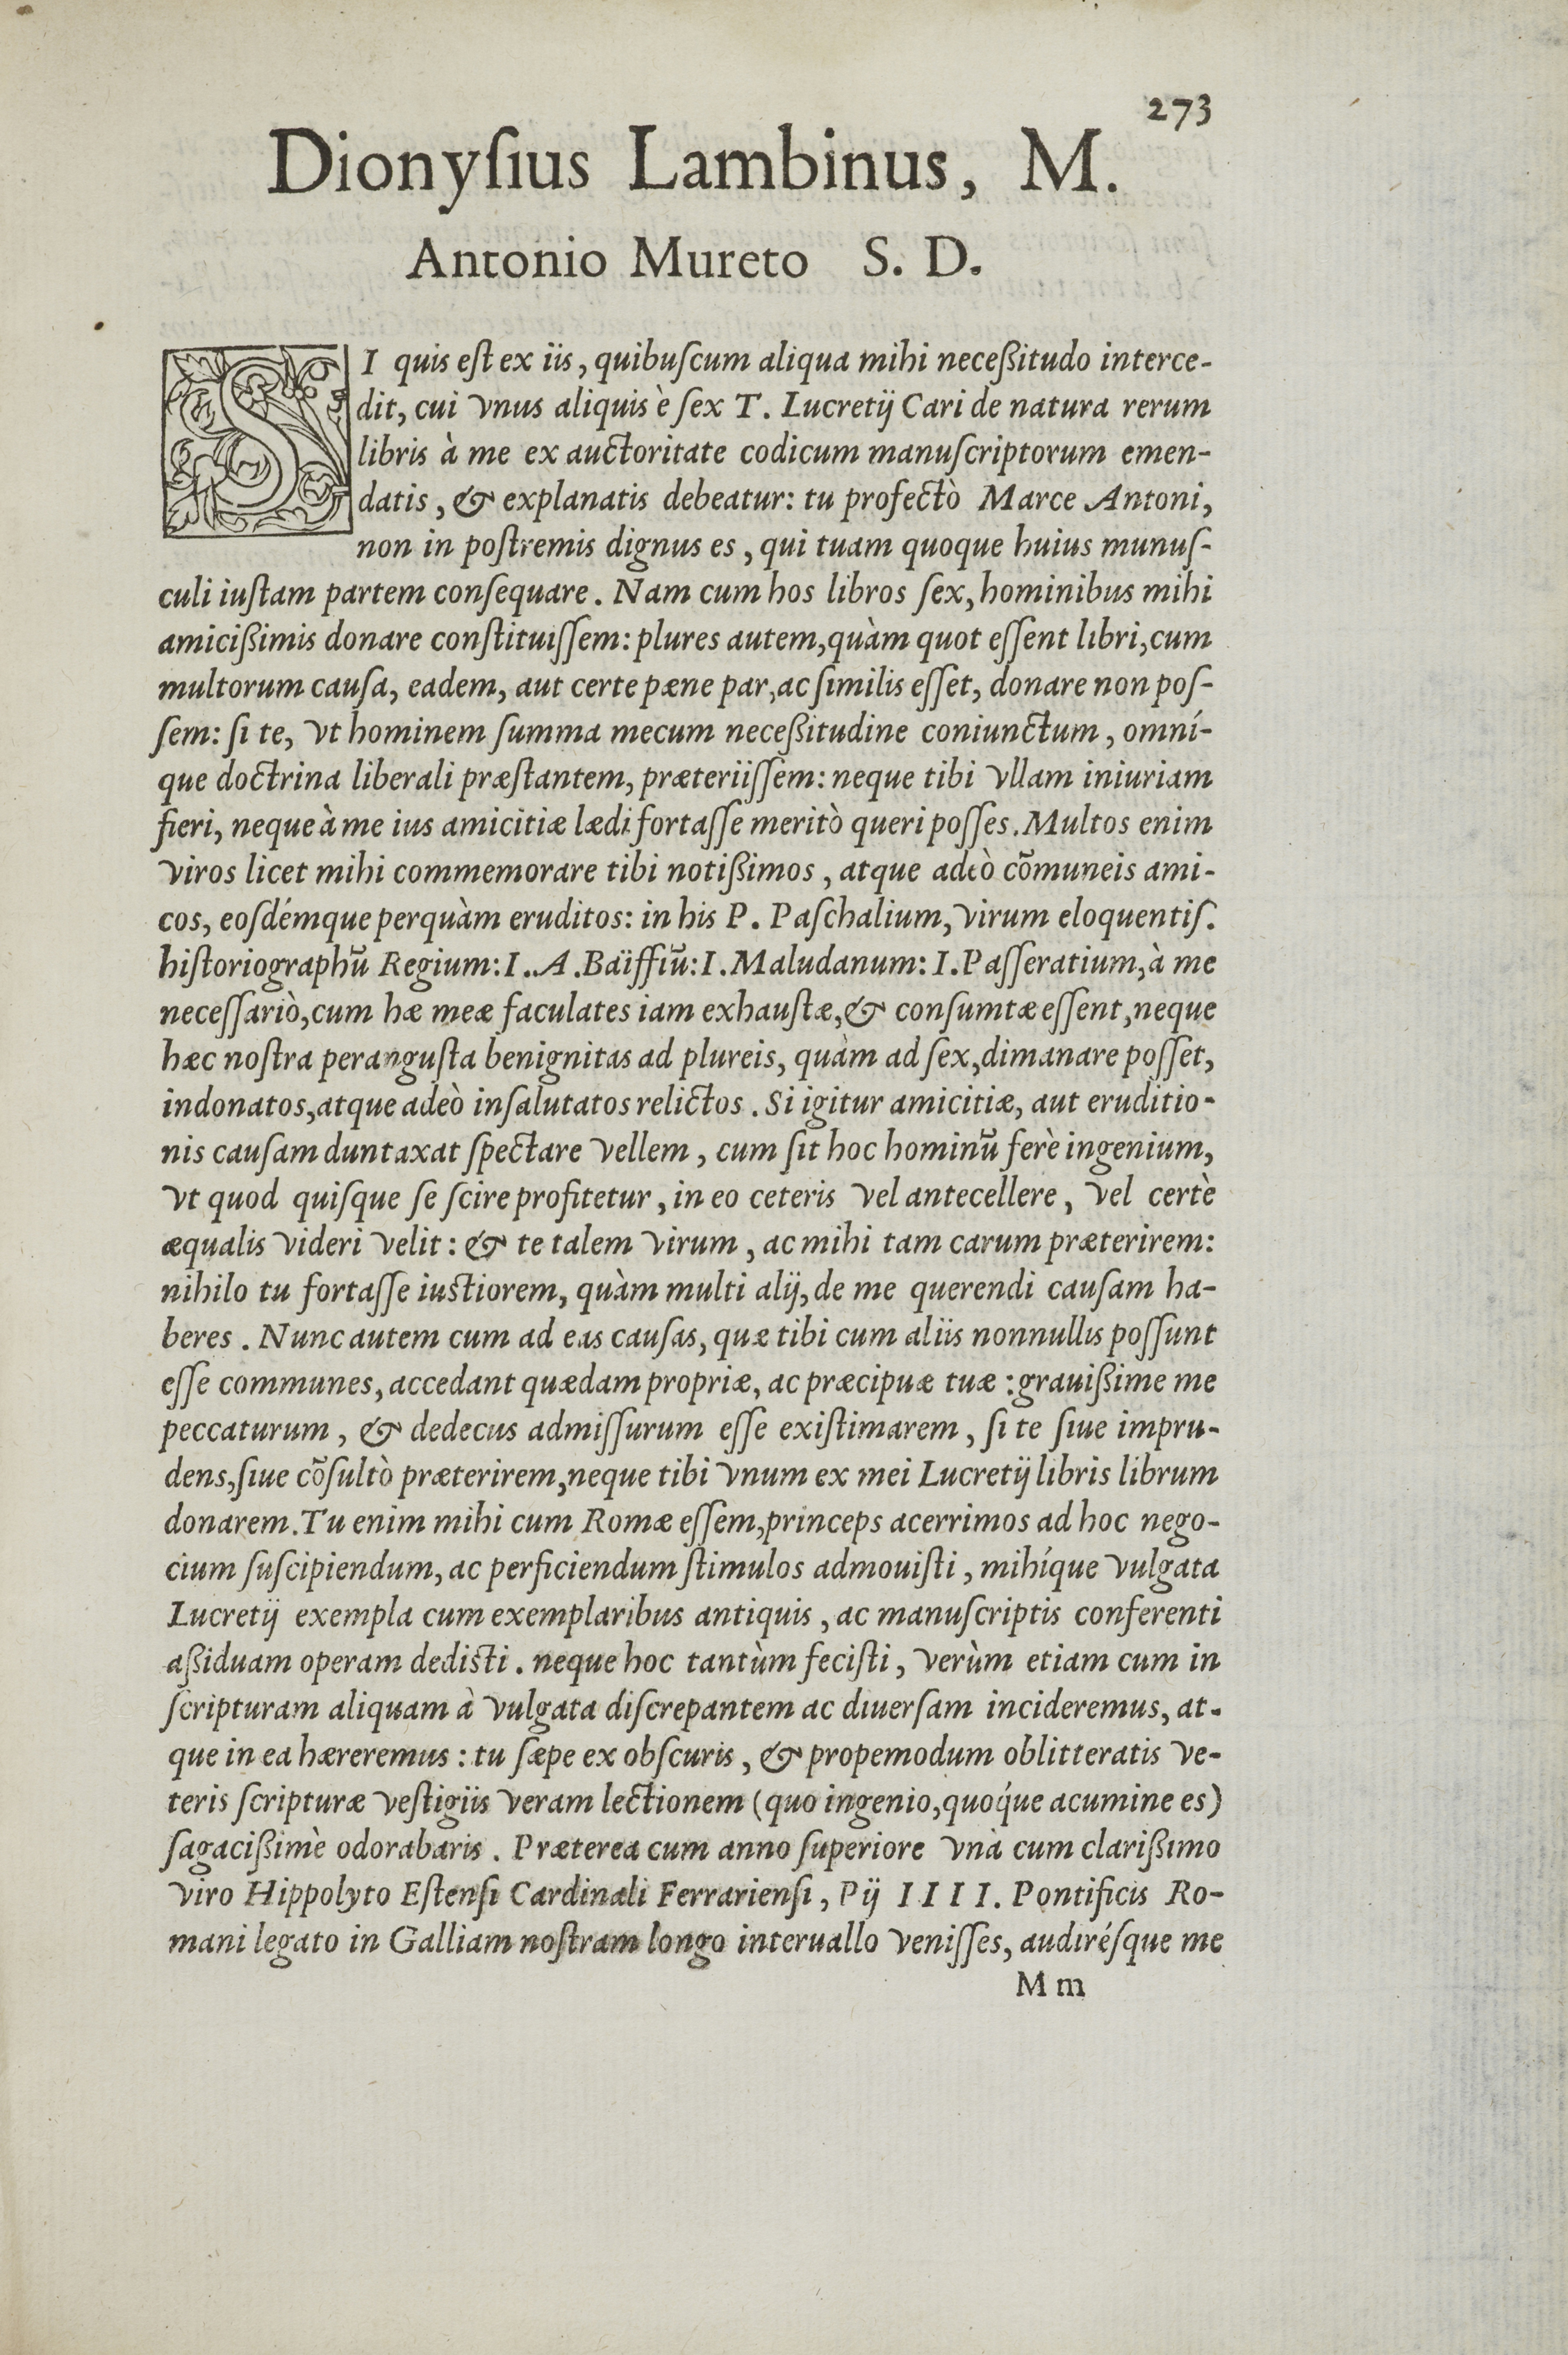 273
Dionyſius Lambinus, M.
Antonio Mureto S. D.
SI quis eſt ex iis, quibuſcum aliqua mihi neceßitudo interce-
dit, cui vnus aliquis è ſex T. Lucretij Cari de natura rerum
libris à me ex auctoritate codicum manuſcriptorum emen-
datis, & explanatis debeatur: tu profectò Marce Antoni,
non in poſtremis dignus es, qui tuam quoque huius munuſ-
culi iuſtam partem conſequare. Nam cum hos libros ſex, hominibus mihi
amicißimis donare conſtituiſſem: plures autem, quàm quot eſſent libri, cum
multorum cauſa, eadem, aut certe pæne par, ac ſimilis eſſet, donare non poſ-
ſem: ſi te, vt hominem ſumma mecum neceßitudine coniunctum, omní-
que doctrina liberali præſtantem, præteriiſſem: neque tibi vllam iniuriam
fieri, neque à me ius amicitiæ lædi fortaſſe meritò queri poſſes. Multos enim
viros licet mihi commemorare tibi notißimos, atque adeò cōmuneis ami-
cos, eoſdémque perquàm eruditos: in his P. Paſchalium, virum eloquentiſ.
hiſtoriographū Regium: I. A. Baïffiū: I. Maludanum: I. Paſſeratium, à me
neceſſariò, cum hæ meæ faculates iam exhauſtæ, & conſumtæ eſſent, neque
hæc noſtra peranguſta benignitas ad plureis, quàm ad ſex, dimanare poſſet,
indonatos, atque adeò inſalutatos relictos. Si igitur amicitiæ, aut eruditio-
nis cauſam duntaxat ſpectare vellem, cum ſit hoc hominū ferè ingenium,
vt quod quiſque ſe ſcire profitetur, in eo ceteris vel antecellere, vel certè
æqualis videri velit: & te talem virum, ac mihi tam carum præterirem:
nihilo tu fortaſſe iuſtiorem, quàm multi alij, de me querendi cauſam ha-
beres. Nunc autem cum ad eas cauſas, quæ tibi cum aliis nonnullis poſſunt
eſſe communes, accedant quædam propriæ, ac præcipuæ tuæ: grauißime me
peccaturum, & dedecus admiſſurum eſſe exiſtimarem, ſi te ſiue impru-
dens, ſiue cōſultò præterirem, neque tibi vnum ex mei Lucretij libris librum
donarem. Tu enim mihi cum Romæ eſſem, princeps acerrimos ad hoc nego-
cium ſuſcipiendum, ac perficiendum ſtimulos admouiſti, mihíque vulgata
Lucretij exempla cum exemplaribus antiquis, ac manuſcriptis conferenti
aßiduam operam dediſti. neque hoc tantùm feciſti, verùm etiam cum in
ſcripturam aliquam à vulgata diſcrepantem ac diuerſam incideremus, at-
que in ea hæreremus: tu ſæpe ex obſcuris, & propemodum oblitteratis ve-
teris ſcripturæ veſtigiis veram lectionem (quo ingenio, quóque acumine es)
ſagacißimè odorabaris. Præterea cum anno ſuperiore vnà cum clarißimo
viro Hippolyto Eſtenſi Cardinali Ferrarienſi, Pij IIII. Pontificis Ro-
mani legato in Galliam noſtram longo interuallo veniſſes, audiréſque me
Mm